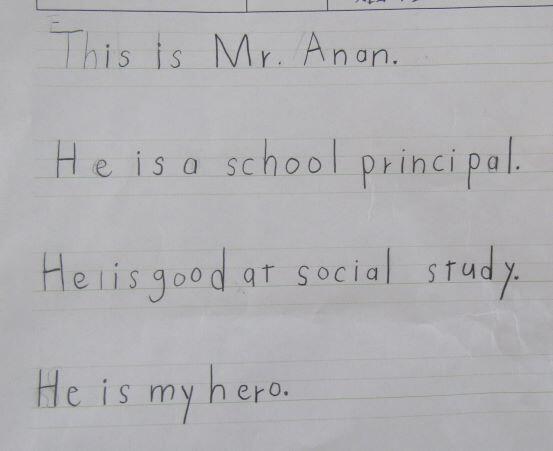 This is Mr. Anan.
He is a school principal.
He is good at social study.
He is my hero.